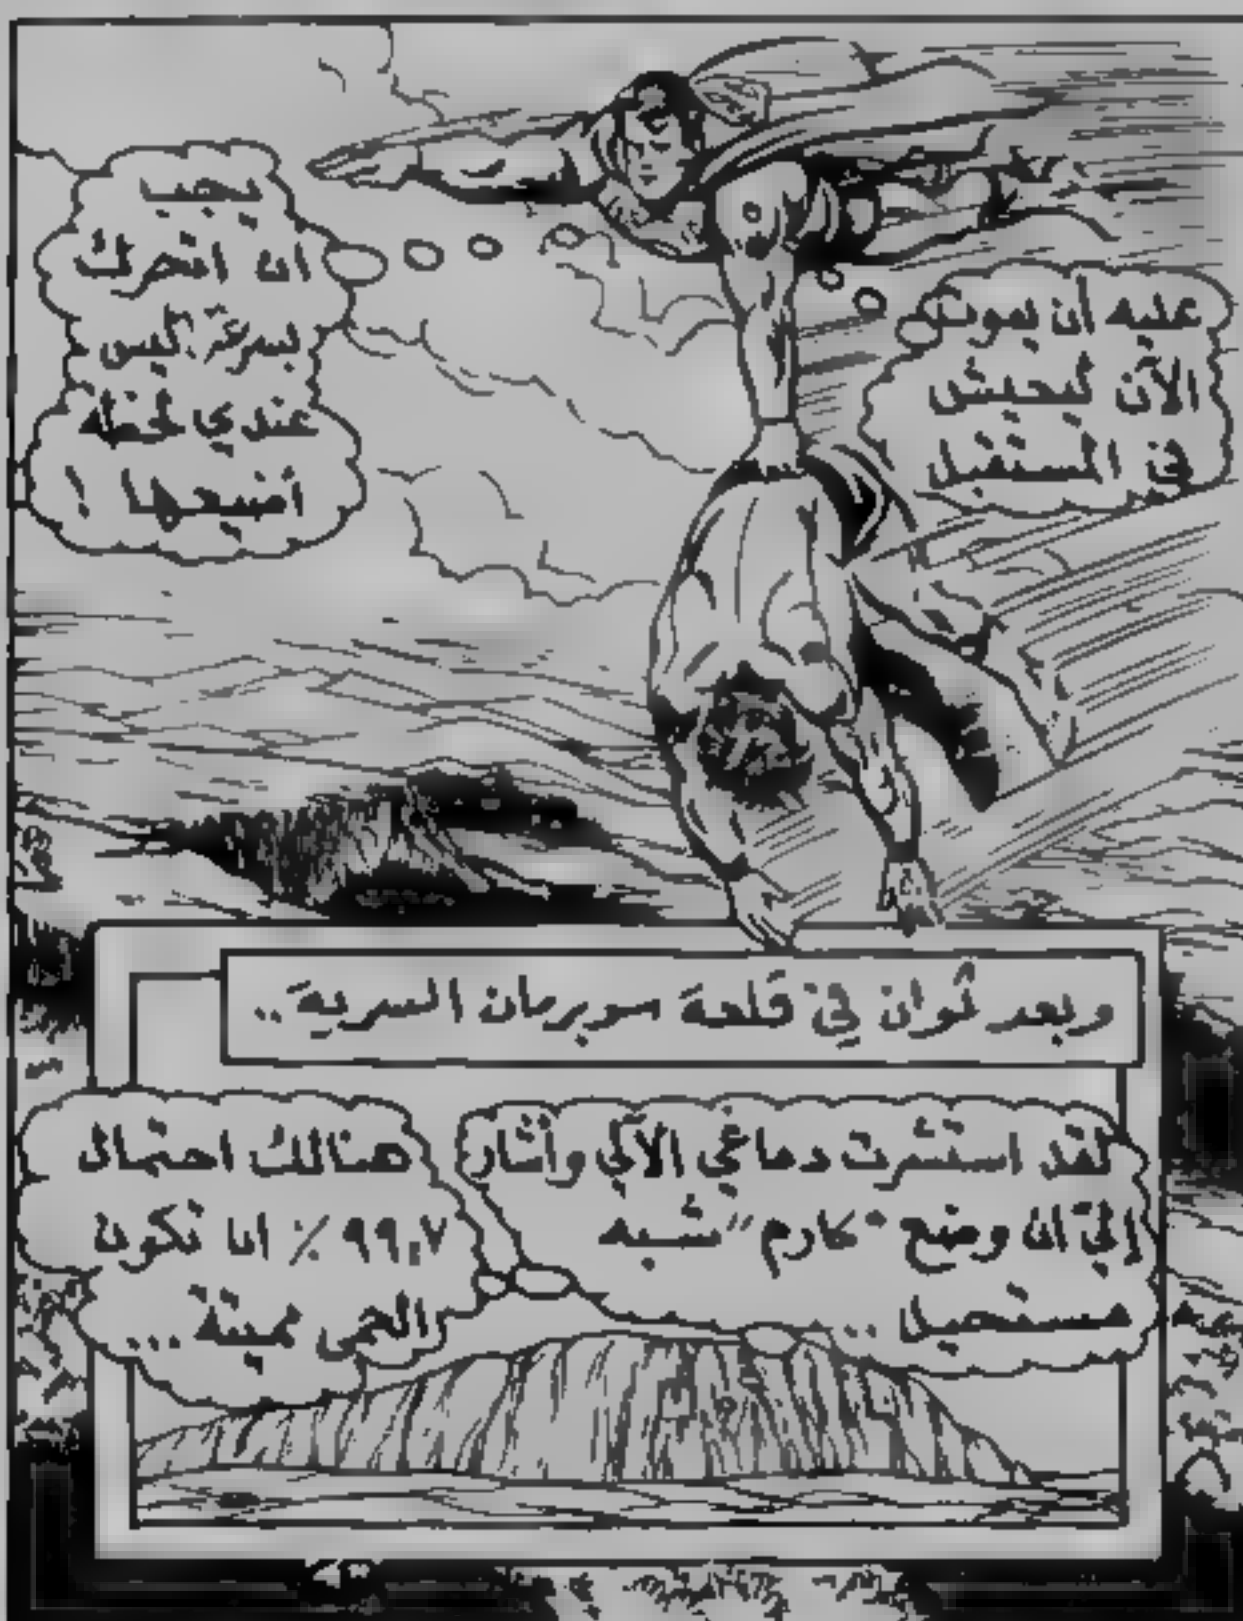 عليه أن يموت
الآن ليعيش
في المستقبل
يجب
ان اتحرك
بسرعة، ليس
عندي لحظة
أضيعها !
وبعد ثوان في قلعة سوبرمان السرية..
لقد استشرت دماغي الآلي وأشار
إليّ ان وضع "كارم" شبه
مستحيل ..
هنالك احتمال
٩٩,٧ ٪ ان تكون
الحمى مميتة ...